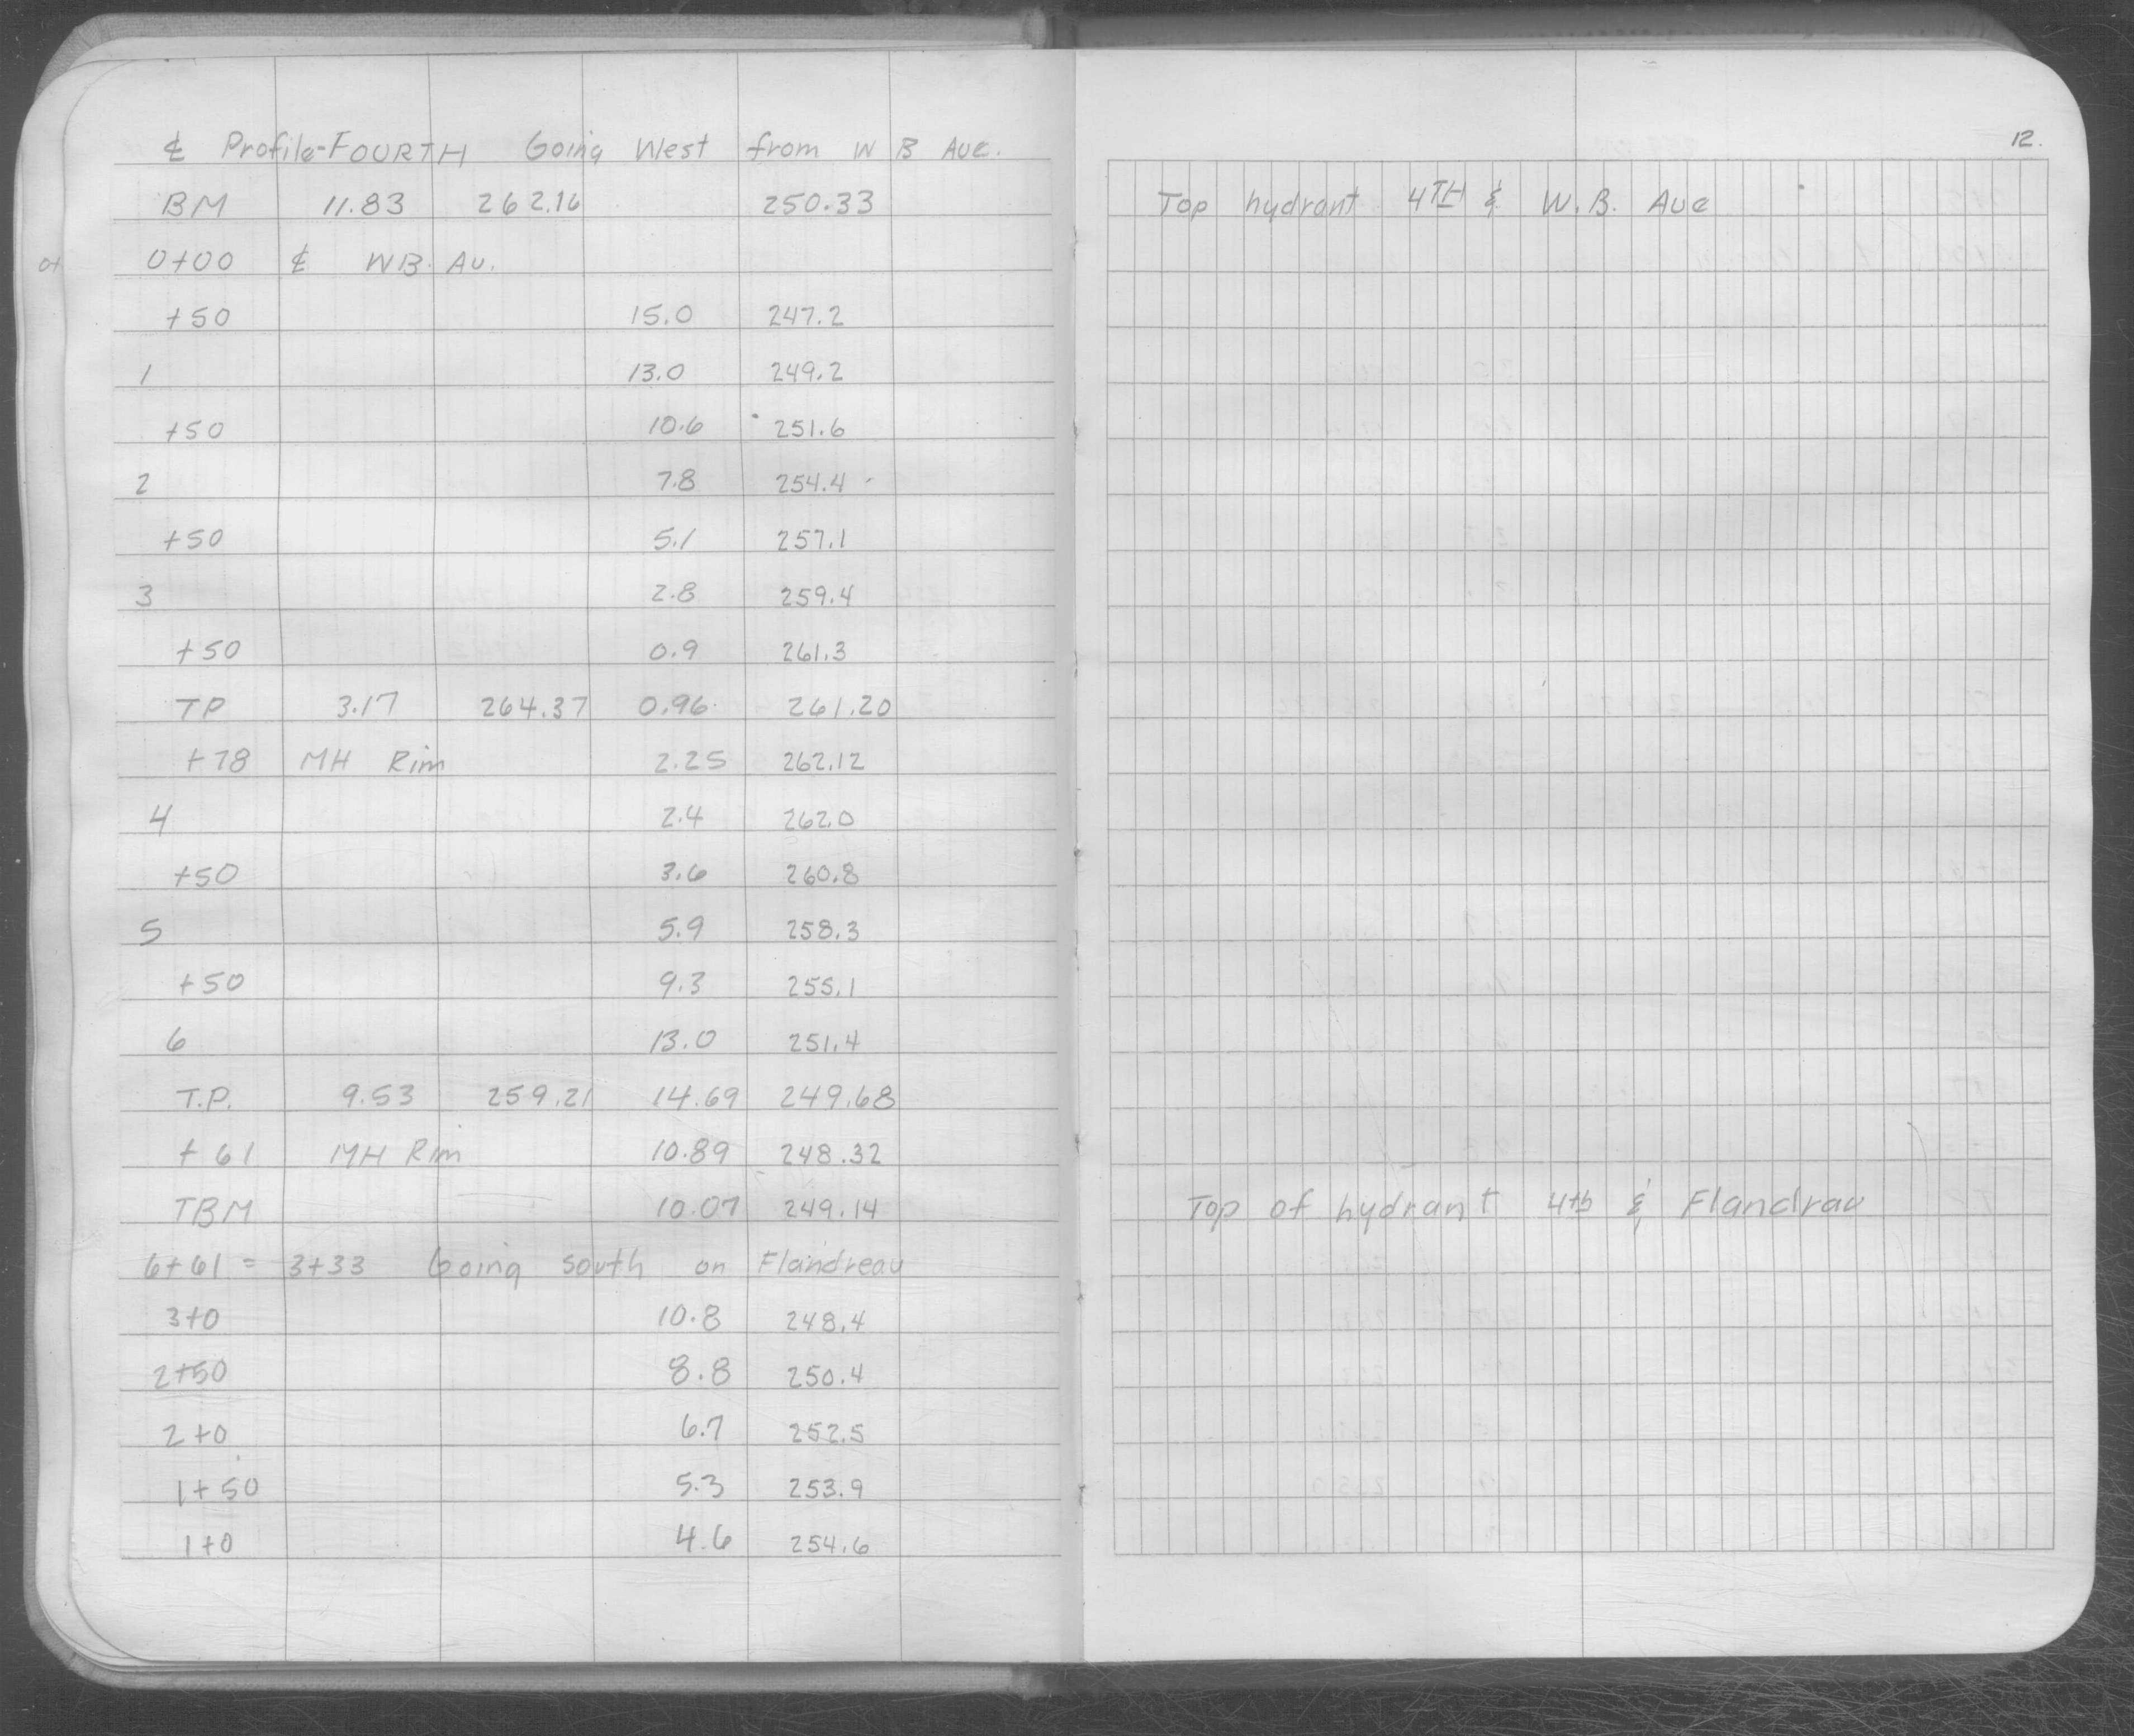 ℄ Profile-FOURTH Going West from W B Ave.
BM 11.83 262.16 250.33
0+00 ℄ WB. Av.
+50 15.0 247.2
1 13.0 249.2
+50 10.6 251.6
2 7.8 254.4
+50 5.1 257.1
3 2.8 259.4
+50 0.9 261.3
TP 3.17 264.37 0.96 261.20
+78 MH Rim 2.25 262.12
4 2.4 262.0
+50 3.6 260.8
5 5.9 258.3
+50 9.3 255.1
6 13.0 251.4
T.P. 9.53 259.21 14.69 249.68
+61 MH Rim 10.89 248.32
TBM 10.07 249.14
6+61 = 3+33 Going south on Flandreau
3+0 10.8 248.4
2+50 8.8 250.4
2+0 6.7 252.5
1+50 5.3 253.9
1+0 4.6 254.6
12.
Top hydrant 4TH & W.B. Ave
Top of hydrant 4th & Flandrau